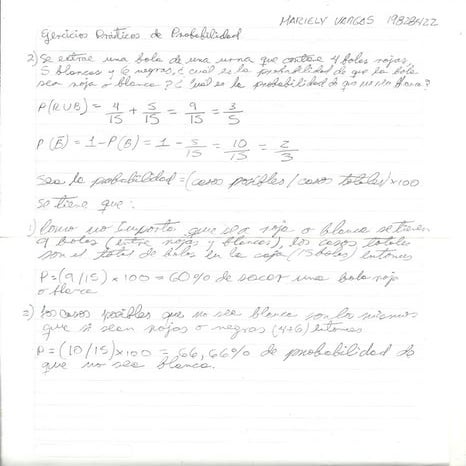 MARIELY VARGAS 19828422
Ejercicios Prácticos de Probabilidad
2) Se extrae una bola de una urna que contiene 4 bolas rojas,
5 blancas y 6 negras, ¿cual es la probabilidad de que la bola
sea roja o blanca? ¿Cual es la probabilidad de que no sea blanca?
P(RUB) = 4/15 + 5/15 = 9/15 = 3/5
P(B̄) = 1 - P(B) = 1 - 5/15 = 10/15 = 2/3
sea la probabilidad = (casos posibles / casos totales) x 100
se tiene que:
1) Como no importa que sea roja o blanca se tienen
9 bolas (entre rojas y blancas), los casos totales
son el total de bolas en la caja (15 bolas) entonces
P = (9/15) x 100 = 60% de sacar una bola roja
o blanca
2) los casos posibles que no sea blanca son los mismos
que si sean rojas o negras (4+6) entonces
P = (10/15) x 100 = 66,66% de probabilidad de
que no sea blanca.